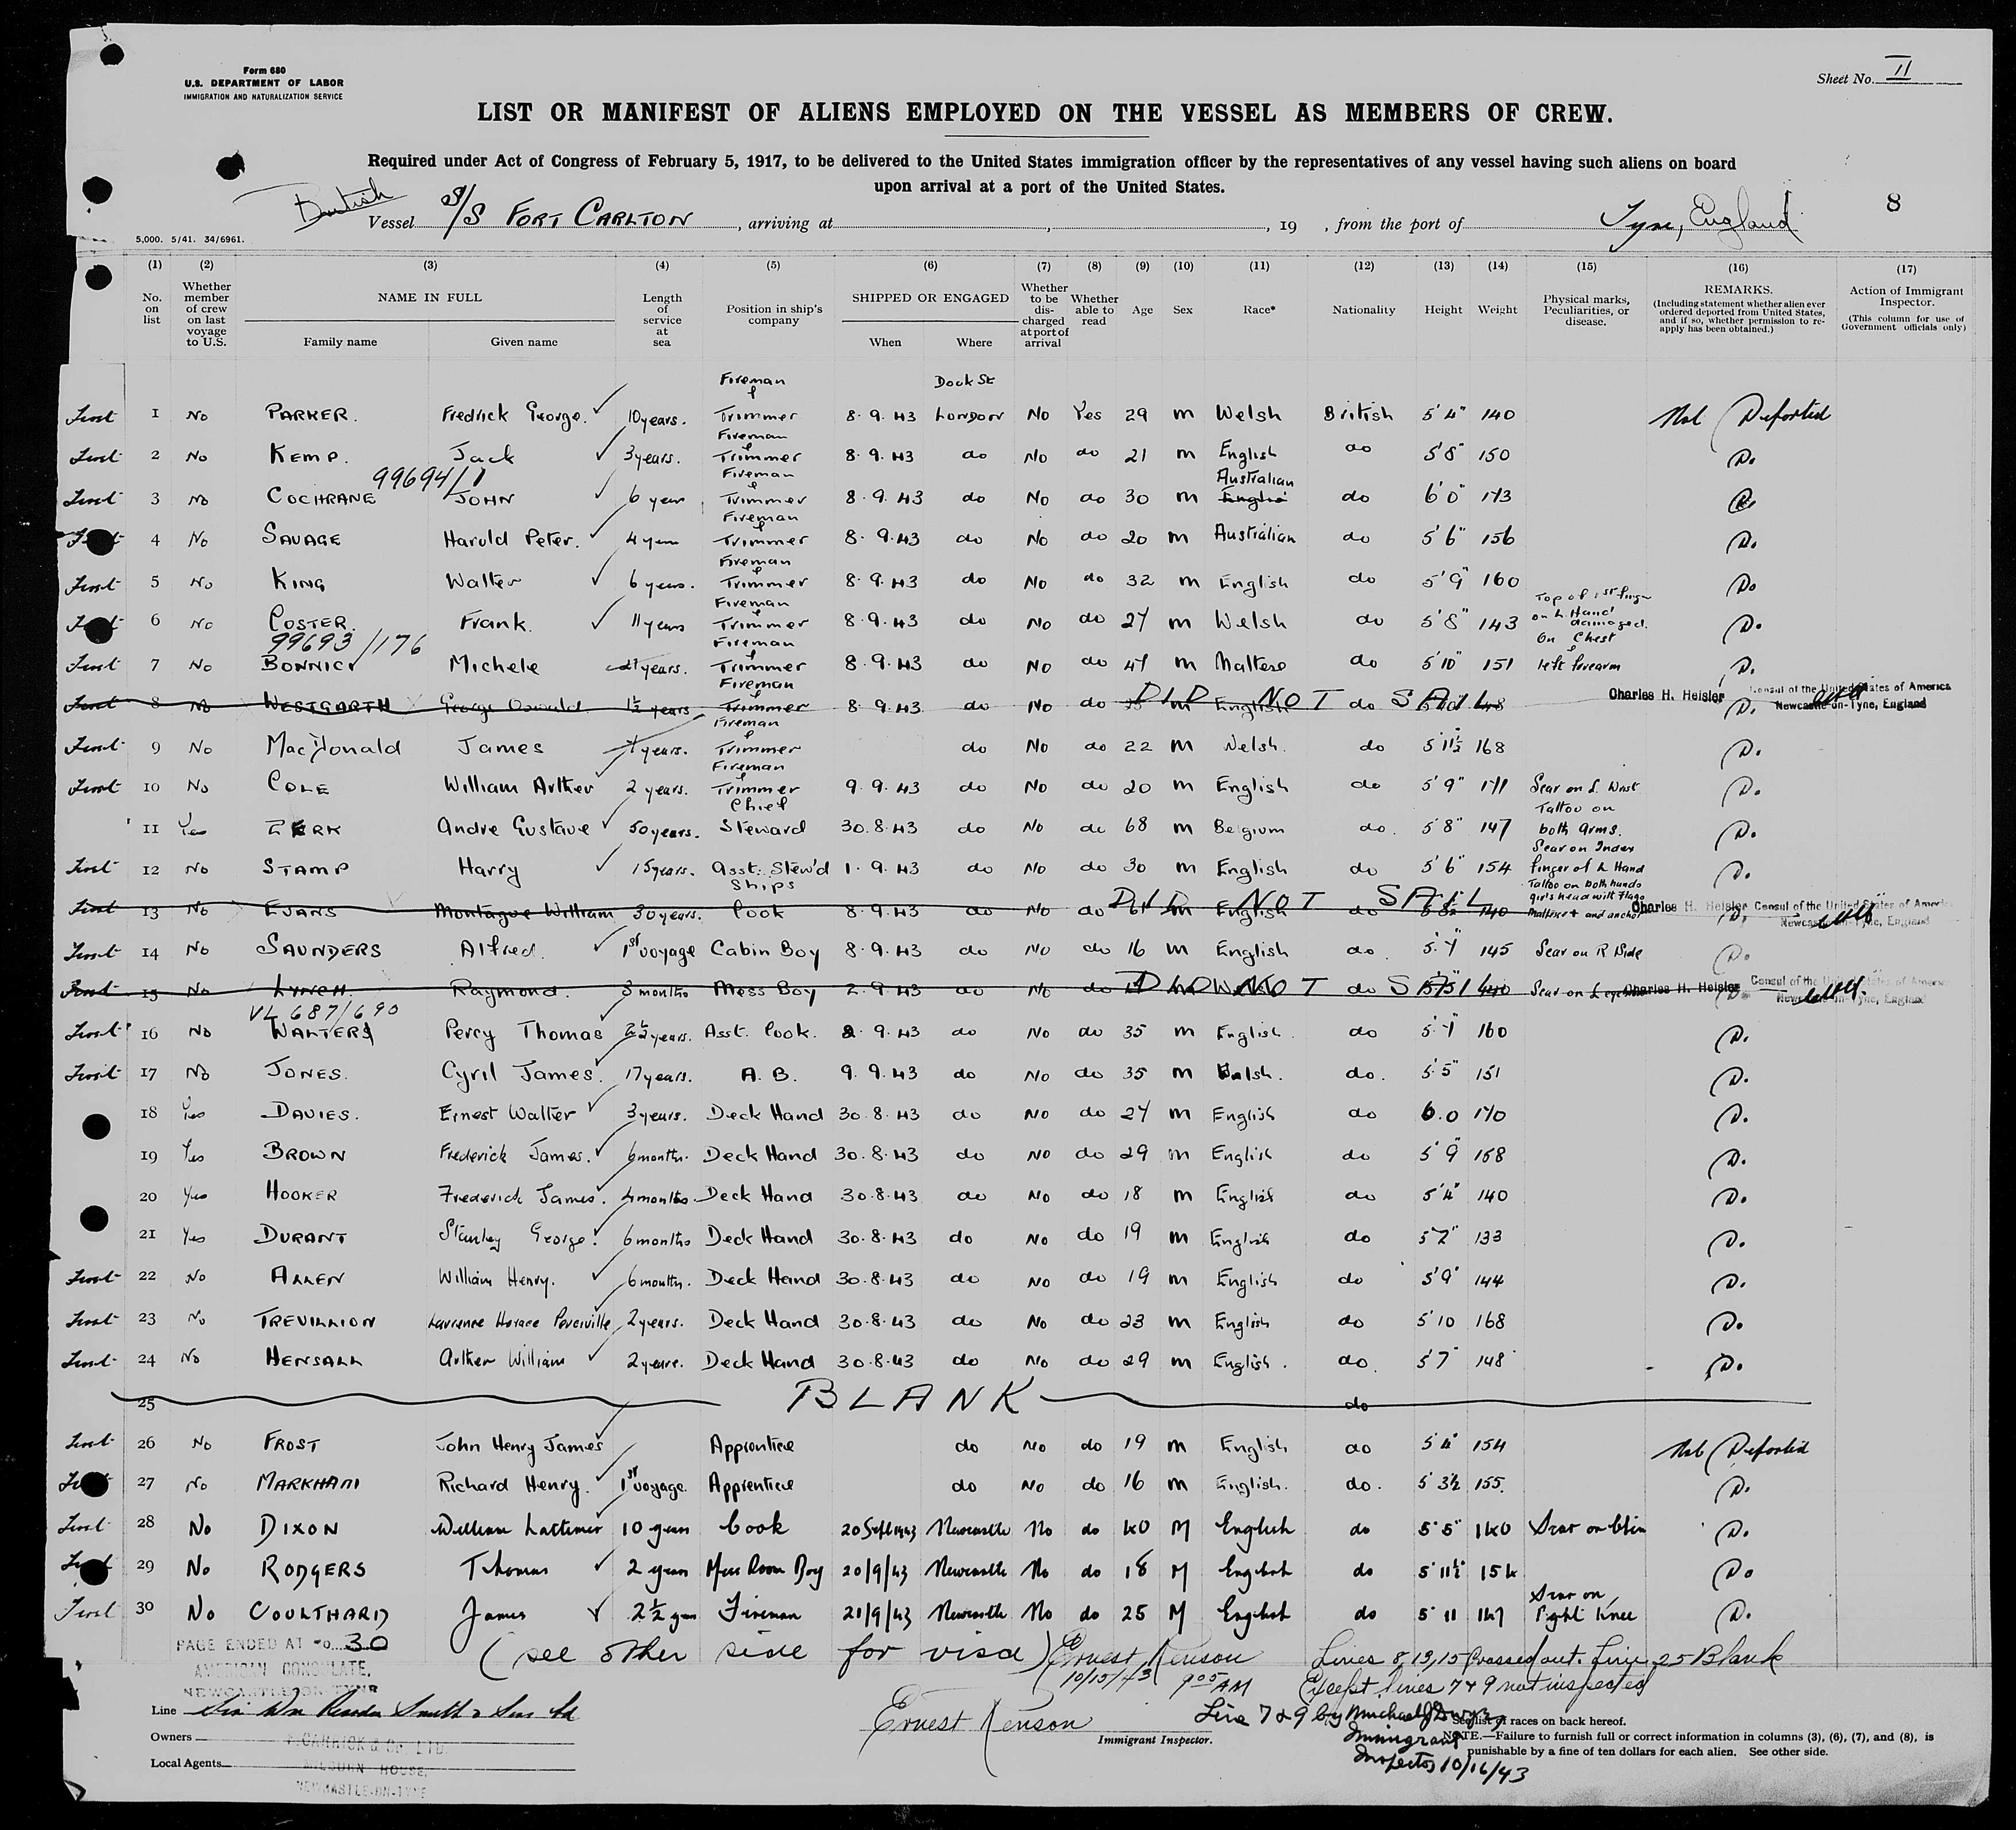 Form 680
U.S. DEPARTMENT OF LABOR
IMMIGRATION AND NATURALIZATION SERVICE
Sheet No. II
LIST OR MANIFEST OF ALIENS EMPLOYED ON THE VESSEL AS MEMBERS OF CREW.
Required under Act of Congress of February 5, 1917, to be delivered to the United States immigration officer by the representatives of any vessel having such aliens on board
upon arrival at a port of the United States.
8
British Vessel S/S FORT CARLTON, arriving at , , 19 , from the port of Tyne, England
5,000. 5/41. 34/6961.
(1) (2) (3) (4) (5) (6) (7) (8) (9) (10) (11) (12) (13) (14) (15) (16) (17)
No. on list
Whether member of crew on last voyage to U.S.
NAME IN FULL
Family name Given name
Length of service at sea
Position in ship's company
SHIPPED OR ENGAGED
When Where
Whether to be discharged at port of arrival
Whether able to read
Age Sex Race* Nationality Height Weight
Physical marks, Peculiarities, or disease.
REMARKS.
(Including statement whether alien ever ordered deported from United States, and if so, whether permission to reapply has been obtained.)
Action of Immigrant Inspector.
(This column for use of Government officials only)
1 No PARKER. Fredrick George. 10 years. Fireman & Trimmer 8.9.43 Dock St London No Yes 29 m Welsh British 5'4" 140 Not Deported
2 No KEMP. Jack 3 years. Fireman & Trimmer 8.9.43 do No do 21 m English do 5'8" 150 Do
99694/1
3 No COCHRANE JOHN 6 years Fireman & Trimmer 8.9.43 do No do 30 m Australian English do 6'0" 173 Do
4 No SAVAGE Harold Peter. 4 years Fireman & Trimmer 8.9.43 do No do 20 m Australian do 5'6" 156 Do
5 No KING Walter 6 years. Fireman & Trimmer 8.9.43 do No do 32 m English do 5'9" 160 Do
6 No COSTER. Frank. 11 years Fireman & Trimmer 8.9.43 do No do 27 m Welsh do 5'8" 143 Top of 1st finger on L Hand damaged. Do
99693/176
7 No BONNICI Michele years. Fireman & Trimmer 8.9.43 do No do 47 m Maltese do 5'10" 151 On Chest & left forearm Do
8 No WESTGARTH George Oswald 1½ years Fireman & Trimmer 8.9.43 do No do m English do DID NOT SAIL Do Charles H. Heisler Consul of the United States of America Newcastle-on-Tyne, England
9 No MacDonald James years. Fireman & Trimmer do No do 22 m Welsh. do 5'11½ 168 Do
10 No COLE William Arther 2 years. Fireman & Trimmer 9.9.43 do No do 20 m English do 5'9" 171 Scar on L. Wrist Do
11 Yes ZERK Andre Gustave 50 years. Chief Steward 30.8.43 do No do 68 m Belgium do. 5'8" 147 Tattoo on both arms. Do
12 No STAMP Harry 15 years. Asst. Stew'd 1.9.43 do No do 30 m English do 5'6" 154 Scar on Index finger of L Hand Do
13 No EVANS Montague William 30 years. Ships Cook 8.9.43 do No do 61 m English do 140 Tattoo on both hands girls head with flags and anchor DID NOT SAIL Charles H. Heisler Consul of the United States of America Newcastle-on-Tyne, England
14 No SAUNDERS Alfred. 1st voyage Cabin Boy 8.9.43 do No do 16 m English do. 5.7" 145 Scar on R Side Do
15 No LYNCH. Raymond. 3 months Mess Boy 2.9.43 do No do do DID NOT SAIL Scar on L eye Charles H. Heisler Consul of the United States of America Newcastle-on-Tyne, England
VL 687/690
16 No WALTERS Percy Thomas 2½ years. Asst. Cook. 2.9.43 do No do 35 m English. do 5.7" 160 Do
17 No JONES. Cyril James. 17 years. A.B. 9.9.43 do No do 35 m Welsh. do. 5.5" 151 Do
18 Yes DAVIES. Ernest Walter 3 years. Deck Hand 30.8.43 do No do 27 m English do 6.0 170 Do
19 Yes BROWN Frederick James. 6 months. Deck Hand 30.8.43 do No do 29 m English do 5'9" 168 Do
20 Yes HOOKER Frederick James. 4 months. Deck Hand 30.8.43 do No do 18 m English do 5'4" 140 Do
21 Yes DURANT Stanley George. 6 months Deck Hand 30.8.43 do No do 19 m English do 5'7" 133 Do
22 No ALLEN William Henry. 6 months. Deck Hand 30.8.43 do No do 19 m English do 5'9" 144 Do
23 No TREVILLION Laurence Horace Perciville 2 years. Deck Hand 30.8.43 do No do 23 m English do 5'10 168 Do
24 No HENSALL Arther William 2 years. Deck Hand 30.8.43 do No do 29 m English. do. 5'7" 148 Do
25 BLANK do
26 No FROST John Henry James Apprentice do No do 19 m English do 5'4" 154 Not Deported
27 No MARKHAM Richard Henry. 1st voyage. Apprentice do No do 16 m English. do. 5'3½ 155. Do
28 No DIXON William Lattimer 10 years Cook 20 Sept 1943 Newcastle No do 40 M English do 5'5" 140 Scar on Chin Do
29 No RODGERS Thomas 2 years Mess Room Boy 20/9/43 Newcastle No do 18 M English do 5'11½" 154 Do
30 No COULTHARD James 2½ years Fireman 21/9/43 Newcastle No do 25 M English do 5'11 147 Scar on right knee Do
PAGE ENDED AT No. 30
AMERICAN CONSULATE,
NEWCASTLE-ON-TYNE
(see other side for visa) Ernest Renson
10/15/43 9 05 AM
Lines 8, 13, 15 Crossed out. Line 25 Blank
Except lines 7 & 9 not inspected
Line 7 & 9 by Michael J Dwyer
Immigrant
Inspector 10/16/43
Line Sir Wm Reardon Smith & Sons Ld
Owners
Local Agents
P. CARRICK & Co. LTD.
MILBURN HOUSE,
NEWCASTLE-ON-TYNE
Ernest Renson
Immigrant Inspector.
*See list of races on back hereof.
NOTE.—Failure to furnish full or correct information in columns (3), (6), (7), and (8), is
punishable by a fine of ten dollars for each alien. See other side.